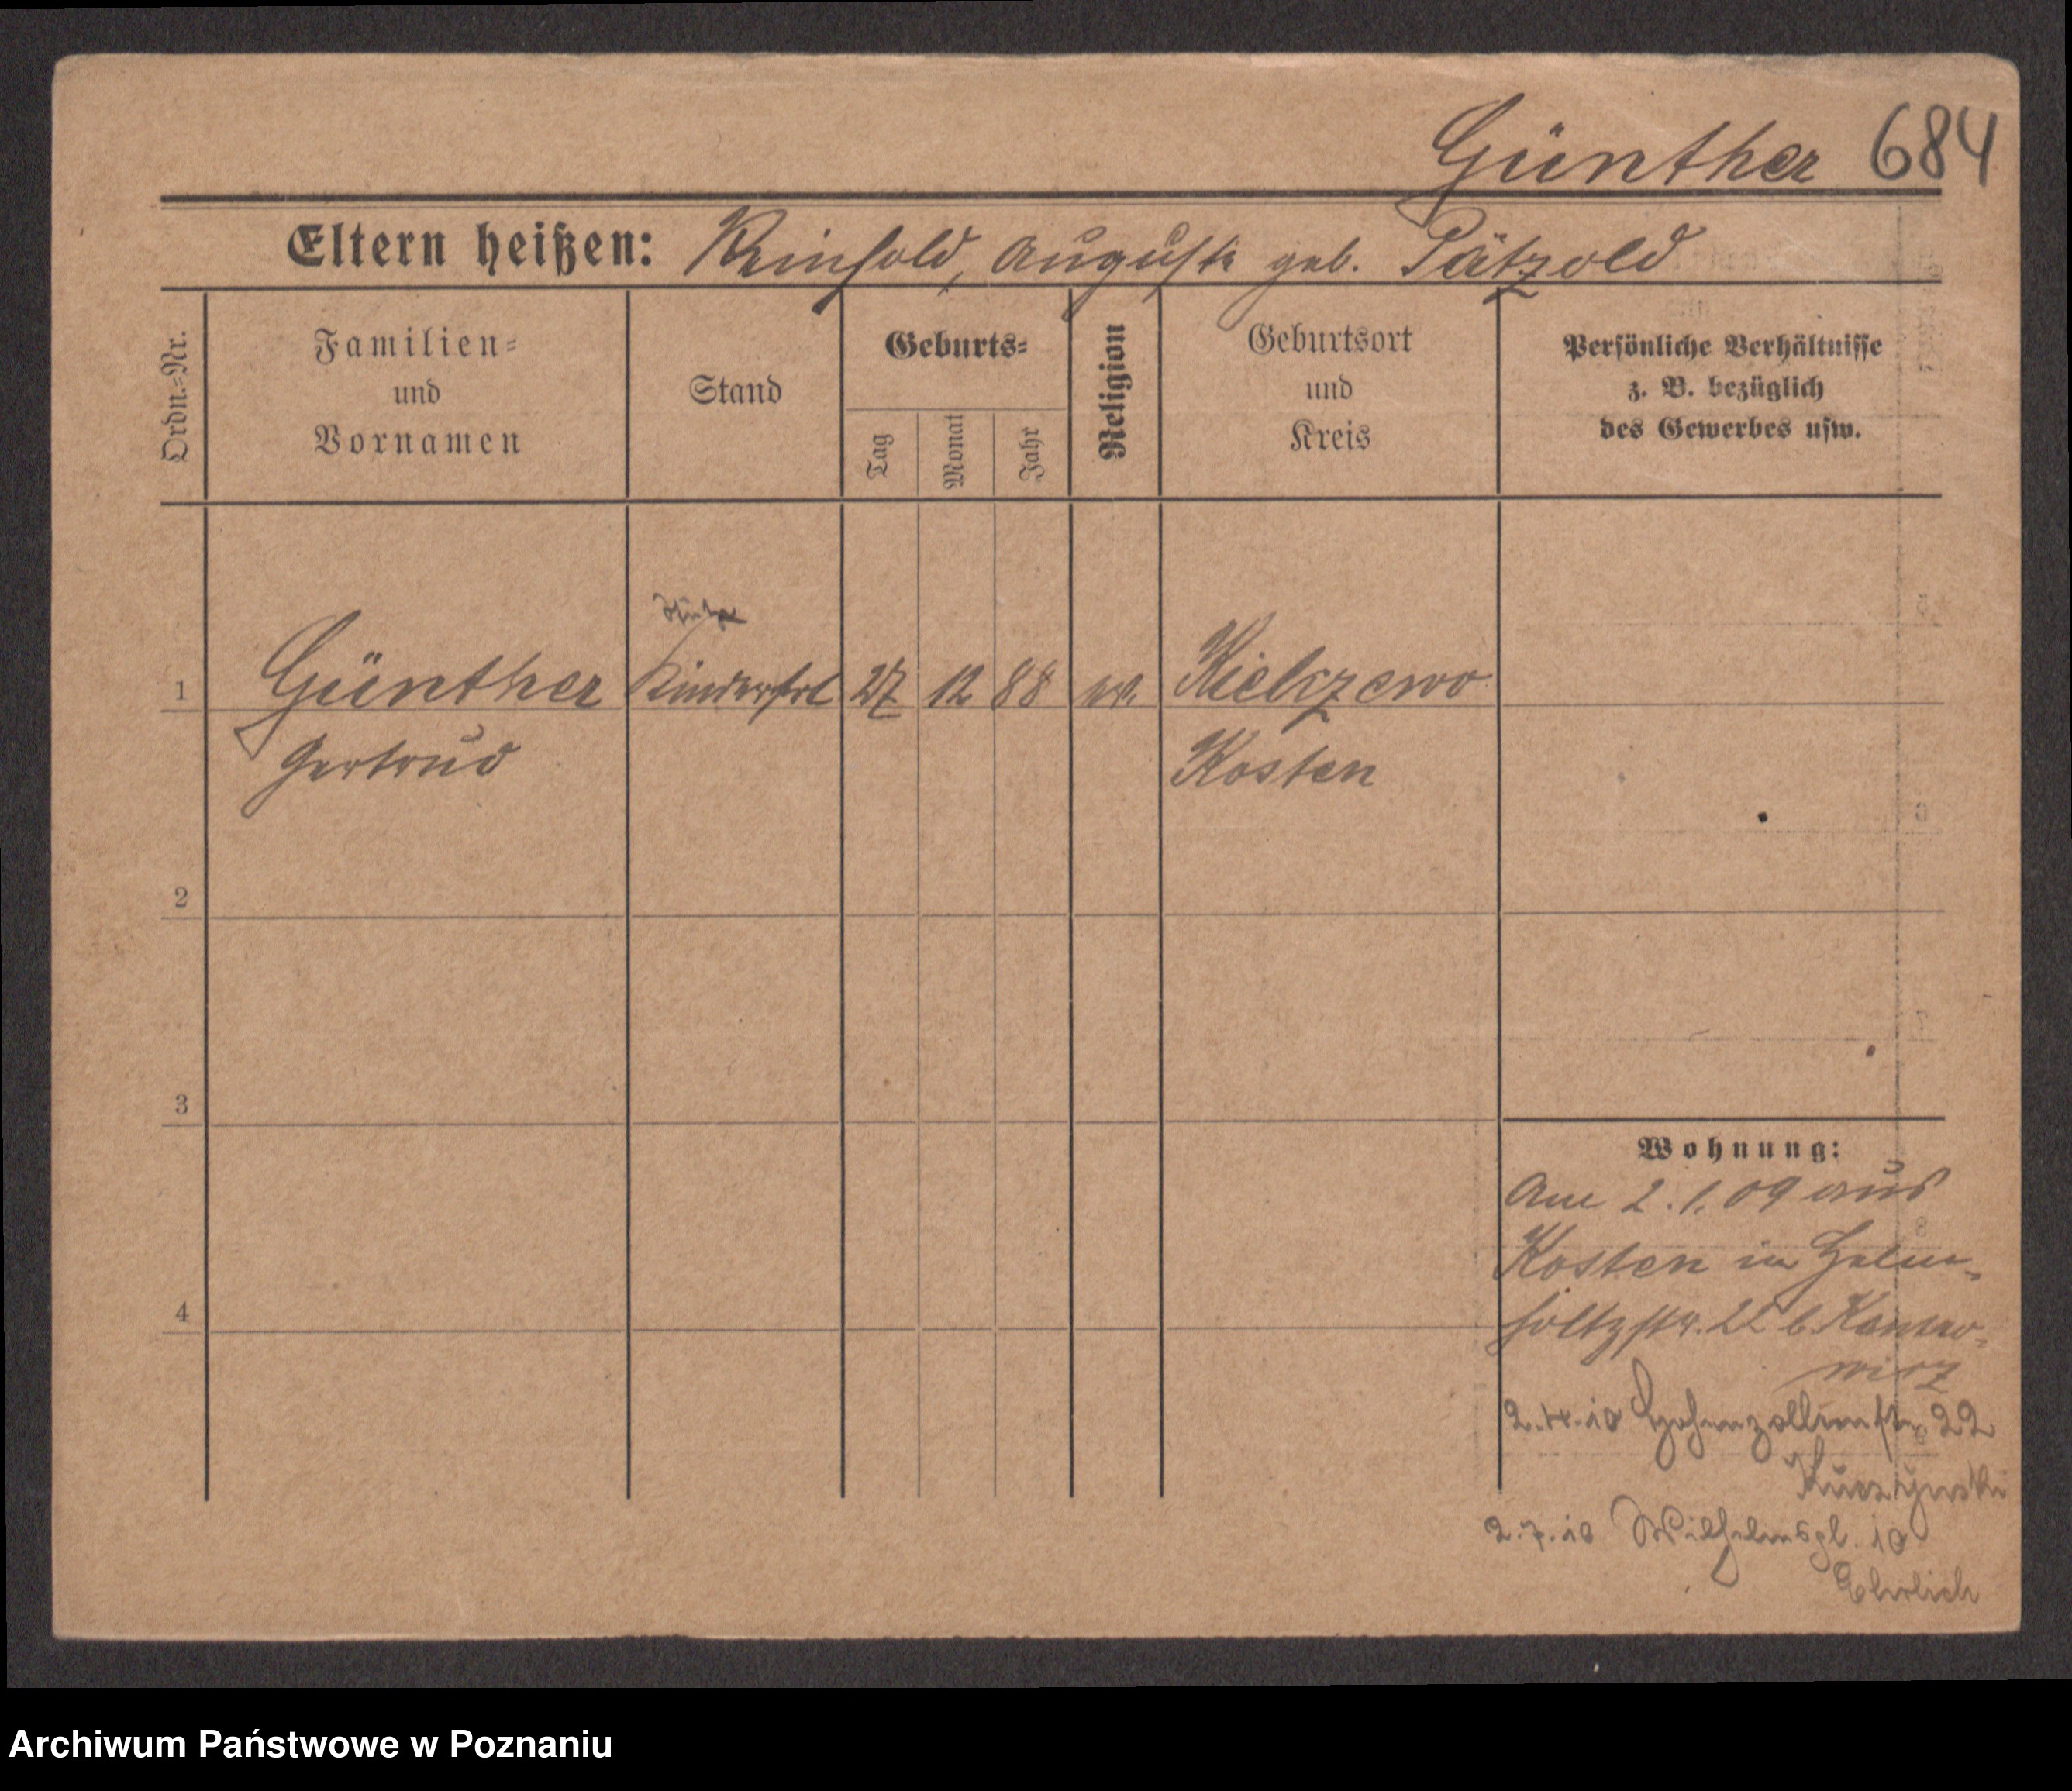 Günther 684
Eltern heißen: Reinhold, Auguste geb. Pätzold
Ordn.=Nr.
Familien=
und
Vornamen
Stand
Geburts=
Tag
Monat
Jahr
Religion
Geburtsort
und
Kreis
Persönliche Verhältnisse
z. B. bezüglich
des Gewerbes usw.
Stütze
1 Günther Kinderfrl 27 12 88 ev. Kielczewo
Gertrud Kosten
2
3
4
Wohnung:
Am 2.1.09 aus
Kosten in Helm-
holtzstr. 22 b.
2.4.10 Hohenzollernstr. 22
2.7.10 Wilhelmspl. 10
Ehrlich
Archiwum Państwowe w Poznaniu